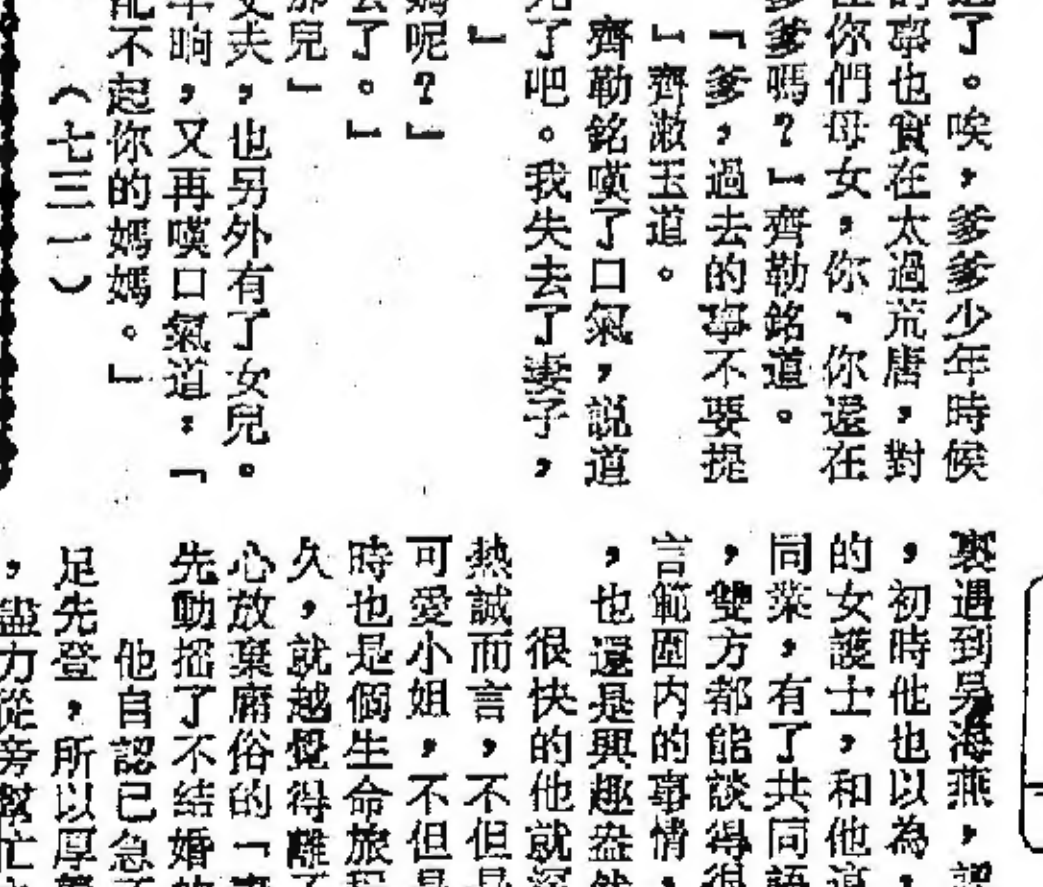 過了。唉，爹爹少年時候
的事也實在太過荒唐，對
你們母女，你、你還在
爹爹嗎？」齊勒銘道。
「爹，過去的事不要提
」齊漱玉道。
齊勒銘嘆了口氣，說道
了吧。我失去了妻子，
」
媽呢？」
去了。」
那兒」
丈夫，也另外有了女兒。
半晌，又再嘆口氣道：「
配不起你的媽媽。」
（七三一）
裏遇到吳海燕，
，初時他也以為，
的女護士，和他
同業，有了共同
，雙方都能談得很
言範圍内的事情，
，也還是興趣盎然
很快的他就深
熱誠而言，不但是
可愛小姐，不但是
時也是個生命旅程
久，就越覺得離不
心放棄庸俗的「
先動搖了不結婚的
他自認已急
足先登，所以厚
，盡力從旁幫忙